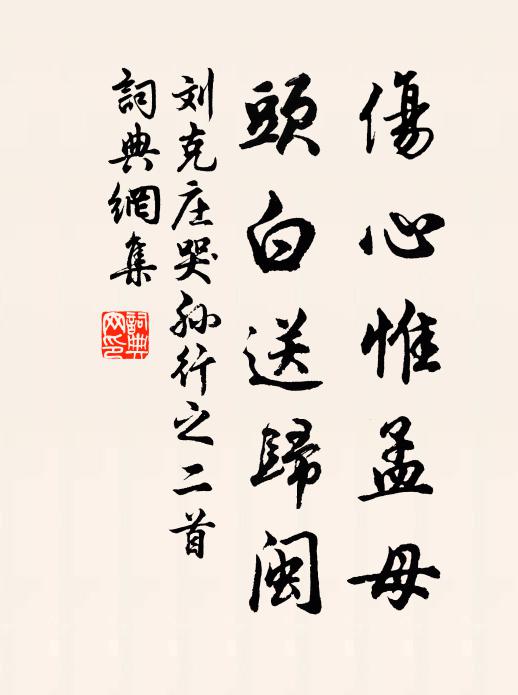 傷心惟孟母
頭白送歸閩
刘克庄哭孙行之二首
詞典網集
詞典
网印